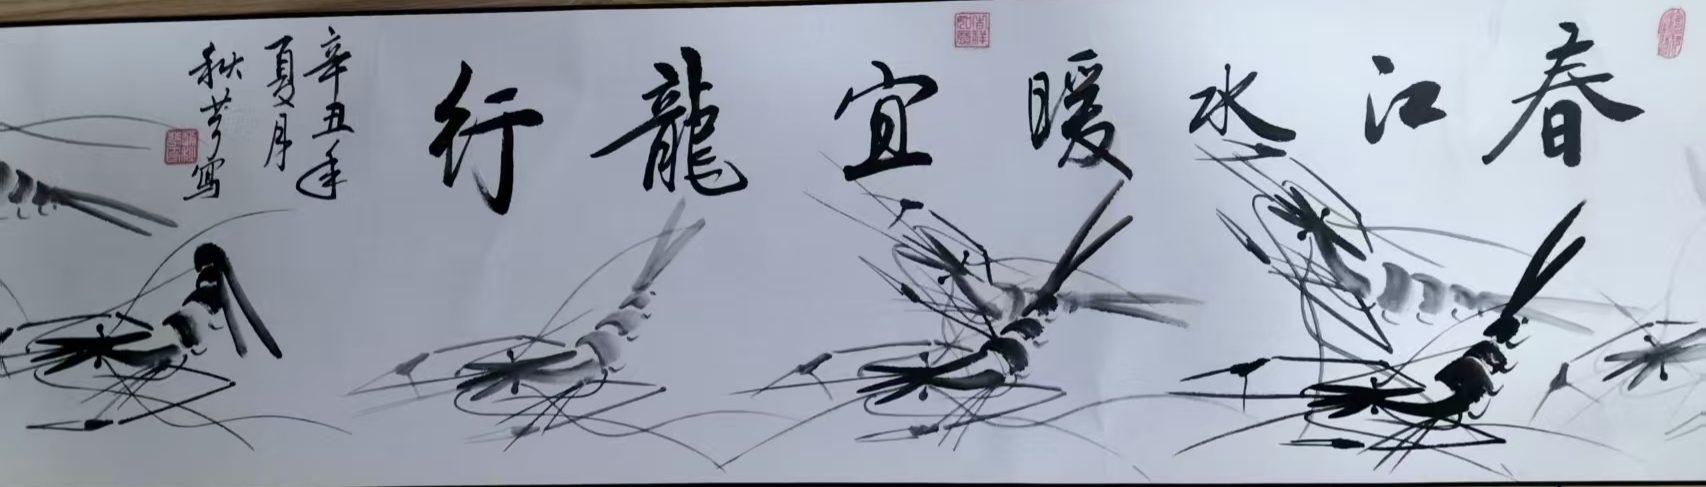 春江水暖宜龍行
辛丑年
夏月
秋芳寫